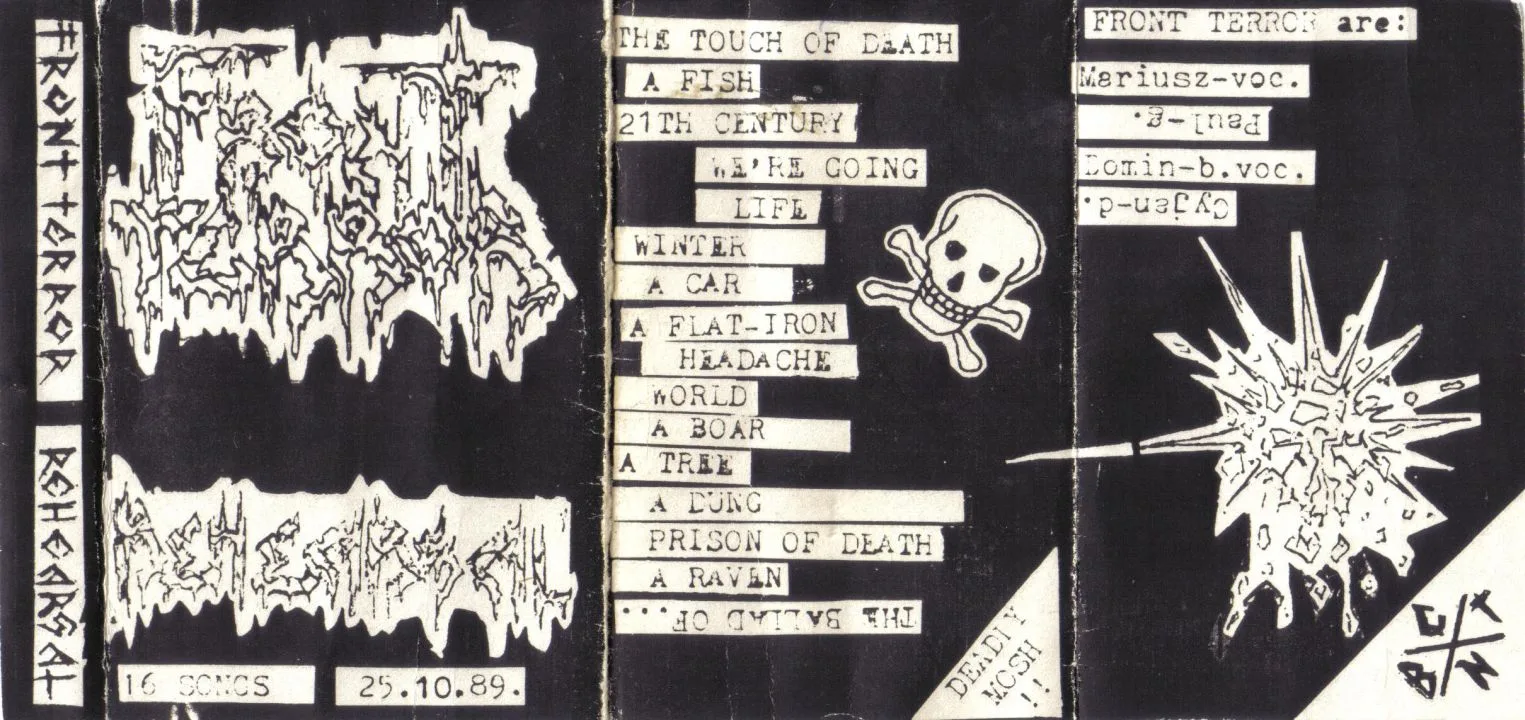 FRONT TERROR
REHEARSAL
FRONT
TERROR
REHEARSAL
16 SONGS
25.10.89.
THE TOUCH OF DEATH
A FISH
21TH CENTURY
WE'RE GOING
LIFE
WINTER
A CAR
A FLAT-IRON
HEADACHE
WORLD
A BOAR
A TREE
A DUNG
PRISON OF DEATH
A RAVEN
THE BALLAD OF...
DEADLY
MOSH
!!
FRONT TERROR are:
Mariusz-voc.
Paul-g.
Domin-b.voc.
Cyjan-d.